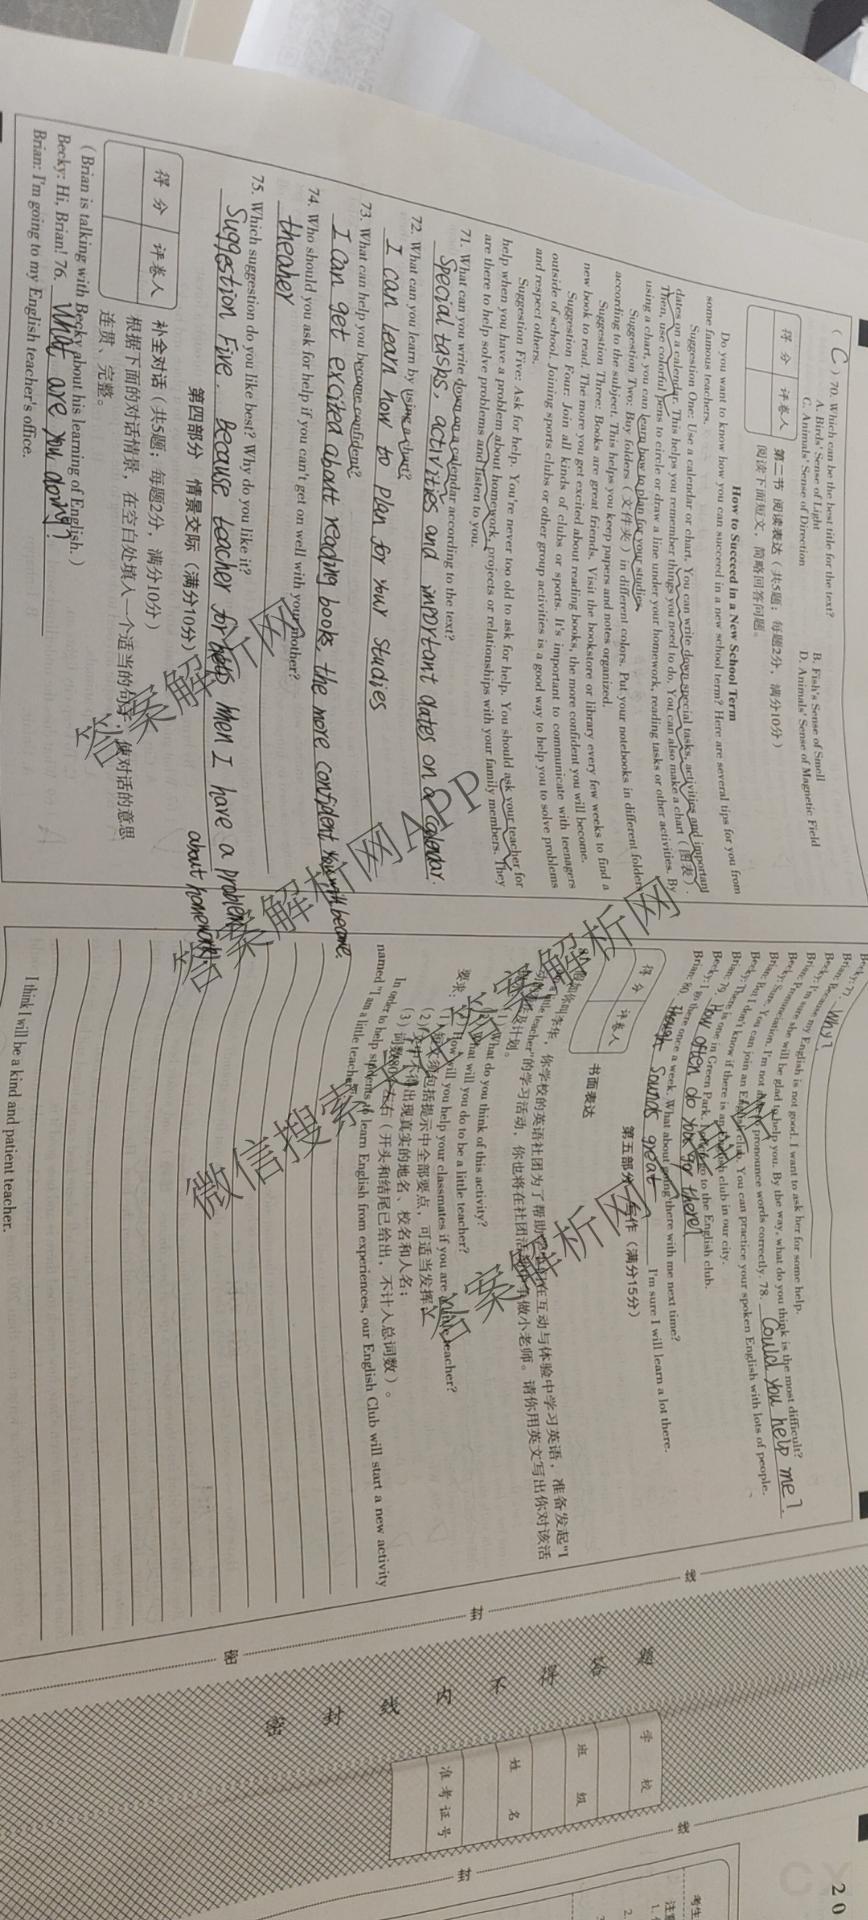 ( C ) 70. Which can be the best title for the text?
A. Birds' Sense of Light
B. Fish's Sense of Smell
C. Animals' Sense of Direction
D. Animals' Sense of Magnetic Field
得 分
评卷人
第二节 阅读表达（共5题；每题2分，满分10分）
阅读下面短文，简略回答问题。
How to Succeed in a New School Term
Do you want to know how you can succeed in a new school term? Here are several tips for you from
some famous teachers.
Suggestion One: Use a calendar or chart. You can write down special tasks, activities and important
dates on a calendar. This helps you remember things you need to do. You can also make a chart（图表）.
Then, use colorful pens to circle or draw a line under your homework, reading tasks or other activities. By
using a chart, you can learn how to plan for your studies.
Suggestion Two: Buy folders（文件夹）in different colors. Put your notebooks in different folders
according to the subject. This helps you keep papers and notes organized.
Suggestion Three: Books are great friends. Visit the bookstore or library every few weeks to find a
new book to read. The more you get excited about reading books, the more confident you will become.
Suggestion Four: Join all kinds of clubs or sports. It's important to communicate with teenagers
outside of school. Joining sports clubs or other group activities is a good way to help you to solve problems
and respect others.
Suggestion Five: Ask for help. You're never too old to ask for help. You should ask your teacher for
help when you have a problem about homework, projects or relationships with your family members. They
are there to help solve problems and listen to you.
71. What can you write down on a calendar according to the text?
Special tasks, activities and important dates on a calendar.
72. What can you learn by using a chart?
I can learn how to plan for your studies
73. What can help you become confident?
I can get excited abatt reading books, the more confident you will become.
74. Who should you ask for help if you can't get on well with your mother?
theaher
75. Which suggestion do you like best? Why do you like it?
Suggestion Five. Because teacher for when I have a problem
about homework
第四部分 情景交际（满分10分）
得 分
评卷人
补全对话（共5题；每题2分，满分10分）
根据下面的对话情景，在空白处填入一个适当的句子，使对话的意思
连贯、完整。
( Brian is talking with Becky about his learning of English. )
Becky: Hi, Brian! 76. What are you doing?
Brian: I'm going to my English teacher's office.
Becky: 77. Why?
Brian: Because my English is not good. I want to ask her for some help.
Becky: I'm sure she will be glad to help you. By the way, what do you think is the most difficult?
Brian: Pronunciation. I'm not able to pronounce words correctly. 78. Could you help me?
Becky: Sure. You can join an English club. You can practice your spoken English with lots of people.
Brian: But I don't know if there is an English club in our city.
Becky: There is one in Green Park. to the English club.
Brian: 79. How often do you go there?
Becky: I go there once a week. What about going there with me next time?
Brian: 80. Sounds great I'm sure I will learn a lot there.
第五部分 写作（满分15分）
得 分
评卷人
书面表达
假如你叫李华，你学校的英语社团为了帮助学生们在互动与体验中学习英语，准备发起“I
am a little teacher”的学习活动，你也将在社团活动中争做小老师。请你用英文写出你对该活
动的看法及计划。
What do you think of this activity?
What will you do to be a little teacher?
How will you help your classmates if you are a little teacher?
要求：（1）短文须包括提示中全部要点，可适当发挥；
（2）文中不得出现真实的地名、校名和人名；
（3）词数80个左右（开头和结尾已给出，不计入总词数）。
In order to help students to learn English from experiences, our English Club will start a new activity
named "I am a little teacher".
I think I will be a kind and patient teacher.
答案解析网
答案解析网APP
答案解析网
微信搜索
答案解析网
密 封 线 内 不 得 答 题
密
封
线
学 校
班 级
姓 名
准考证号
线
封
考生
注意
1.
2.
20